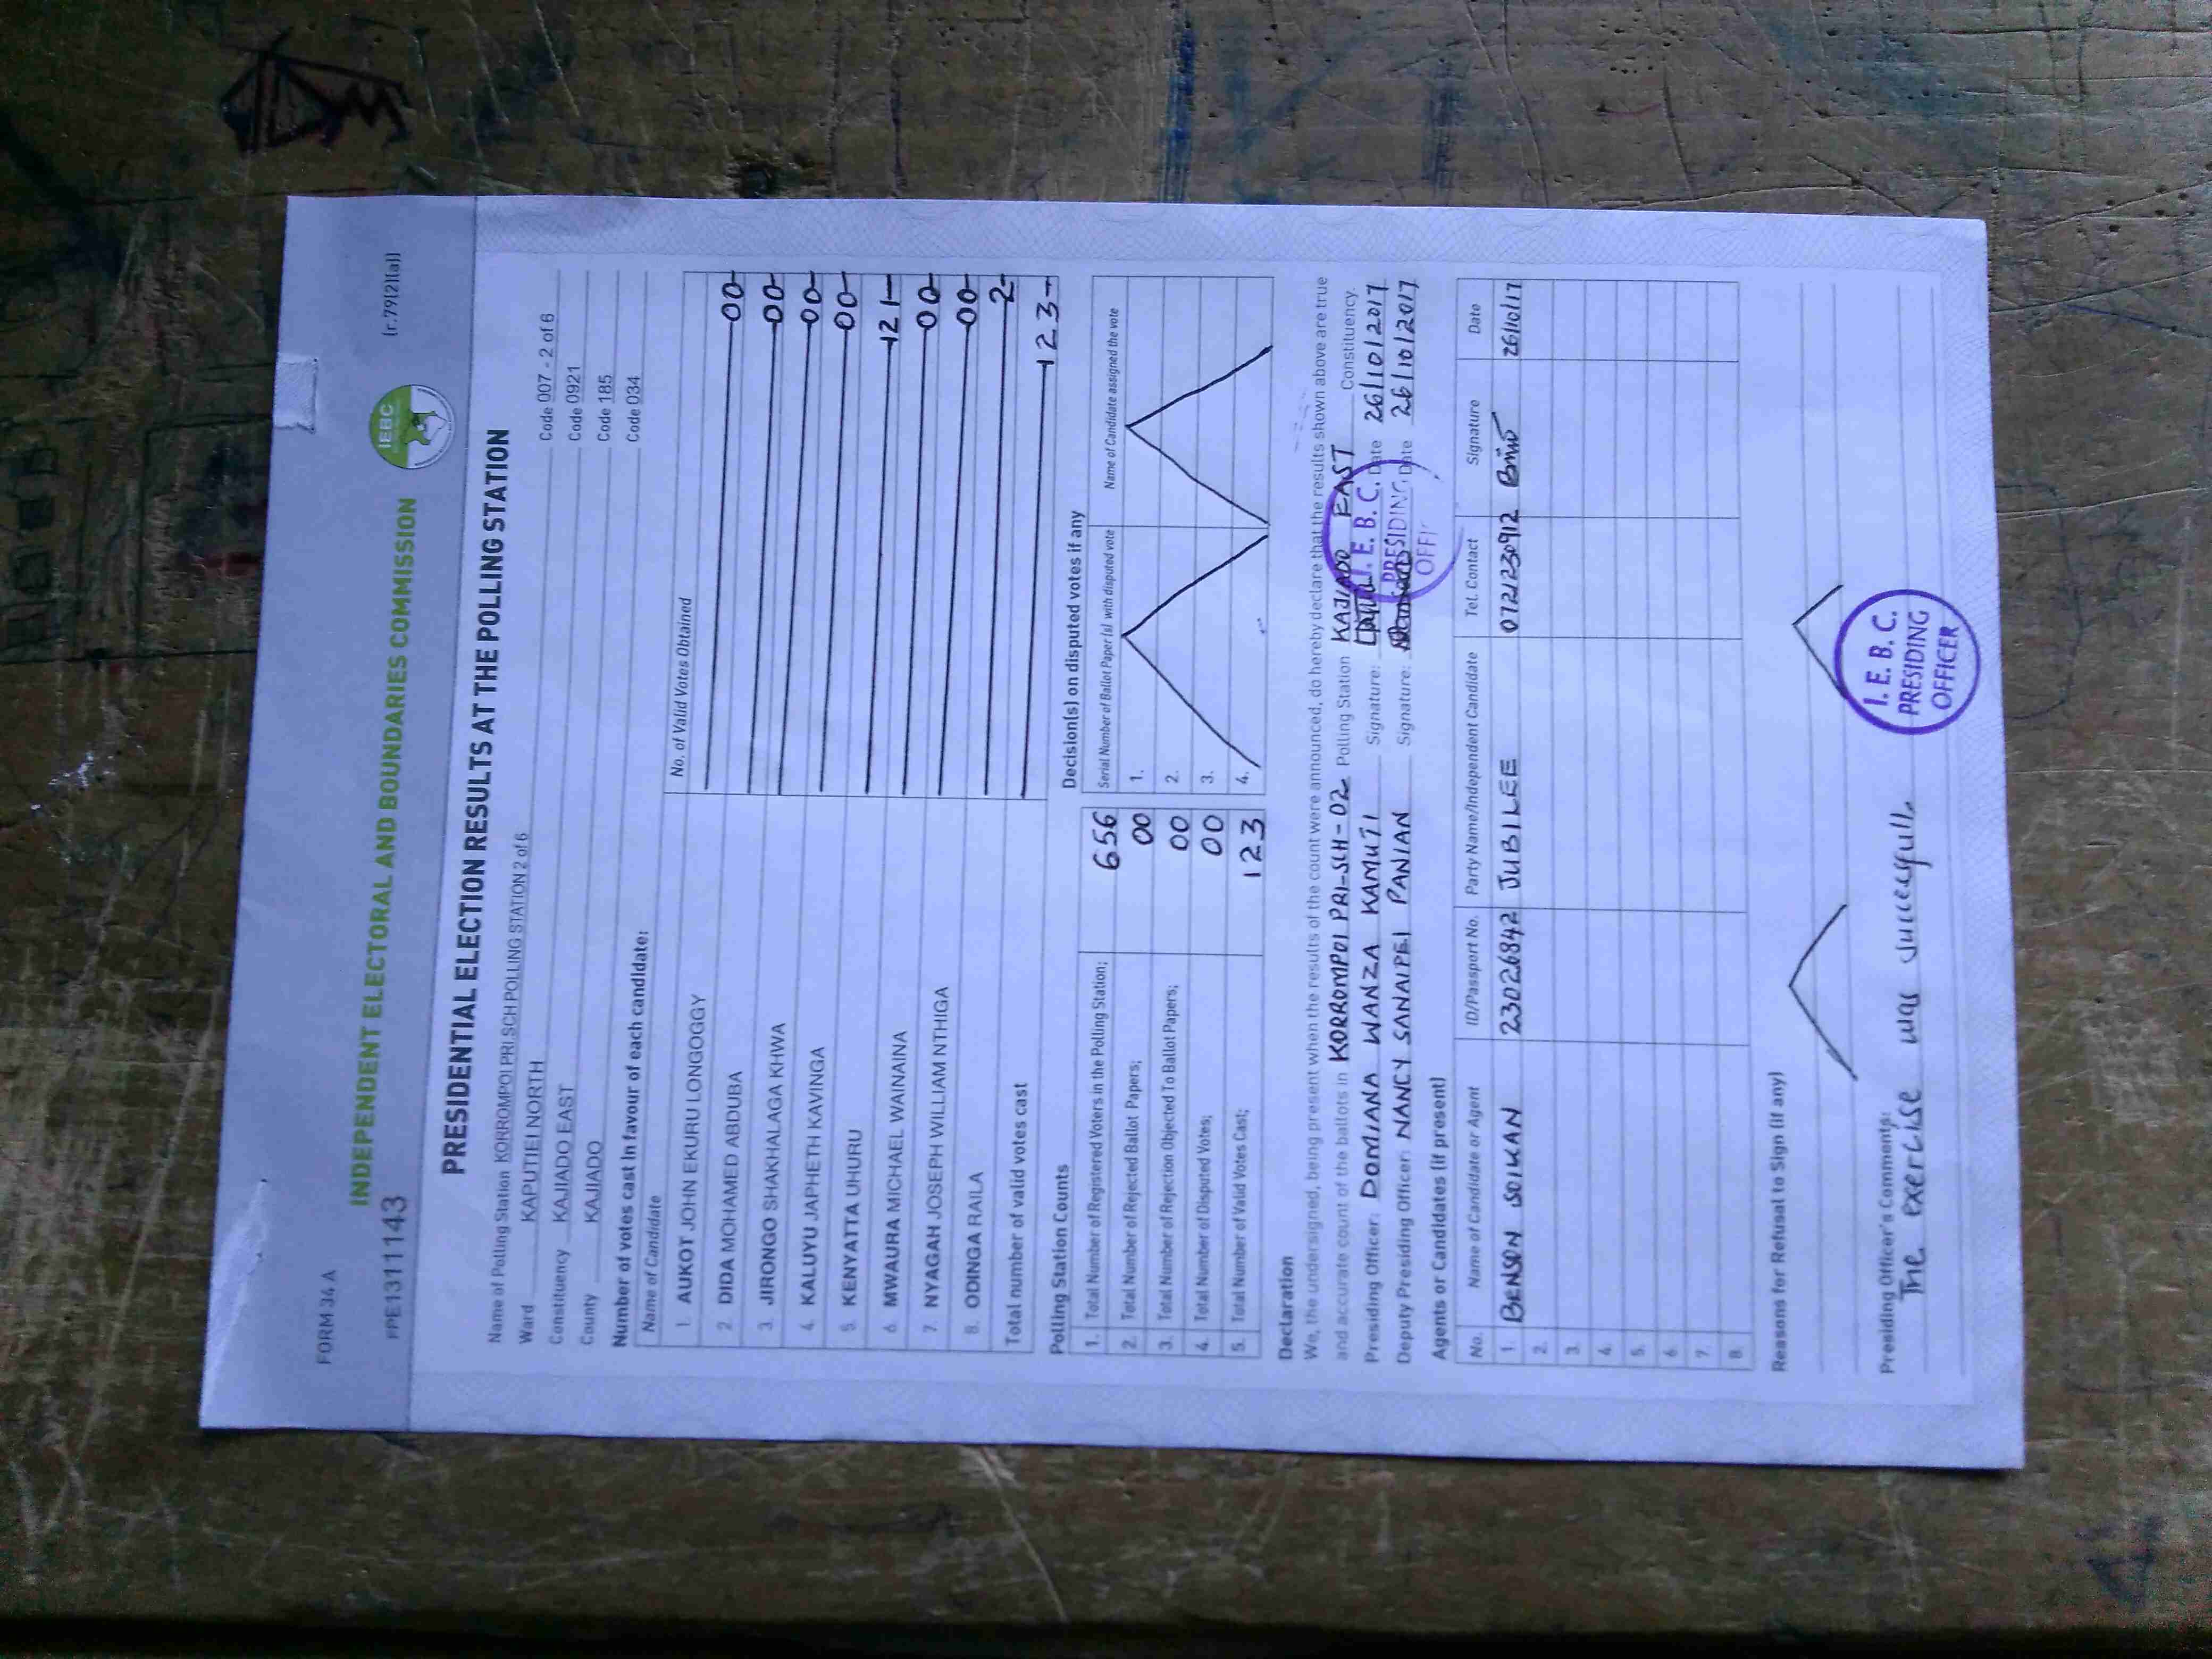 FORM 34 A
INDEPENDENT ELECTORAL AND BOUNDARIES COMMISSION
IEBC
(r.79(2)(a))
PPE1311143
PRESIDENTIAL ELECTION RESULTS AT THE POLLING STATION
Name of Polling Station KORROMPOI PRI.SCH POLLING STATION 2 of 6 Code 007 - 2 of 6
Ward KAPUTIEI NORTH Code 0921
Constituency KAJIADO EAST Code 185
County KAJIADO Code 034
Number of votes cast in favour of each candidate:
Name of Candidate No. of Valid Votes Obtained
1. AUKOT JOHN EKURU LONGOGGY 00
2. DIDA MOHAMED ABDUBA 00
3. JIRONGO SHAKHALAGA KHWA 00
4. KALUYU JAPHETH KAVINGA 00
5. KENYATTA UHURU 121
6. MWAURA MICHAEL WAINAINA 00
7. NYAGAH JOSEPH WILLIAM NTHIGA 00
8. ODINGA RAILA 2
Total number of valid votes cast 123
Polling Station Counts
1. Total Number of Registered Voters in the Polling Station; 656
2. Total Number of Rejected Ballot Papers; 00
3. Total Number of Rejection Objected To Ballot Papers; 00
4. Total Number of Disputed Votes; 00
5. Total Number of Valid Votes Cast; 123
Decision(s) on disputed votes if any
Serial Number of Ballot Paper(s) with disputed vote Name of Candidate assigned the vote
1.
2.
3.
4.
Declaration
We, the undersigned, being present when the results of the count were announced, do hereby declare that the results shown above are true
and accurate count of the ballots in KORROMPOI PRI-SCH-02 Polling Station KAJIADO EAST Constituency.
Presiding Officer: DOMIANA WANZA KAMUTI Signature: Date 26/10/2017
Deputy Presiding Officer: NANCY SANAIPEI PANIAN Signature: Date 26/10/2017
I. E. B. C.
PRESIDING
OFFI
Agents or Candidates (if present)
No. Name of Candidate or Agent ID/Passport No. Party Name/Independent Candidate Tel. Contact Signature Date
1. BENSON SOIKAN 23026842 JUBILEE 0721230912 26/10/17
2.
3.
4.
5.
6.
7.
8.
Reasons for Refusal to Sign (if any)
Presiding Officer's Comments:
The exercise was succesfull.
I. E. B. C.
PRESIDING
OFFICER